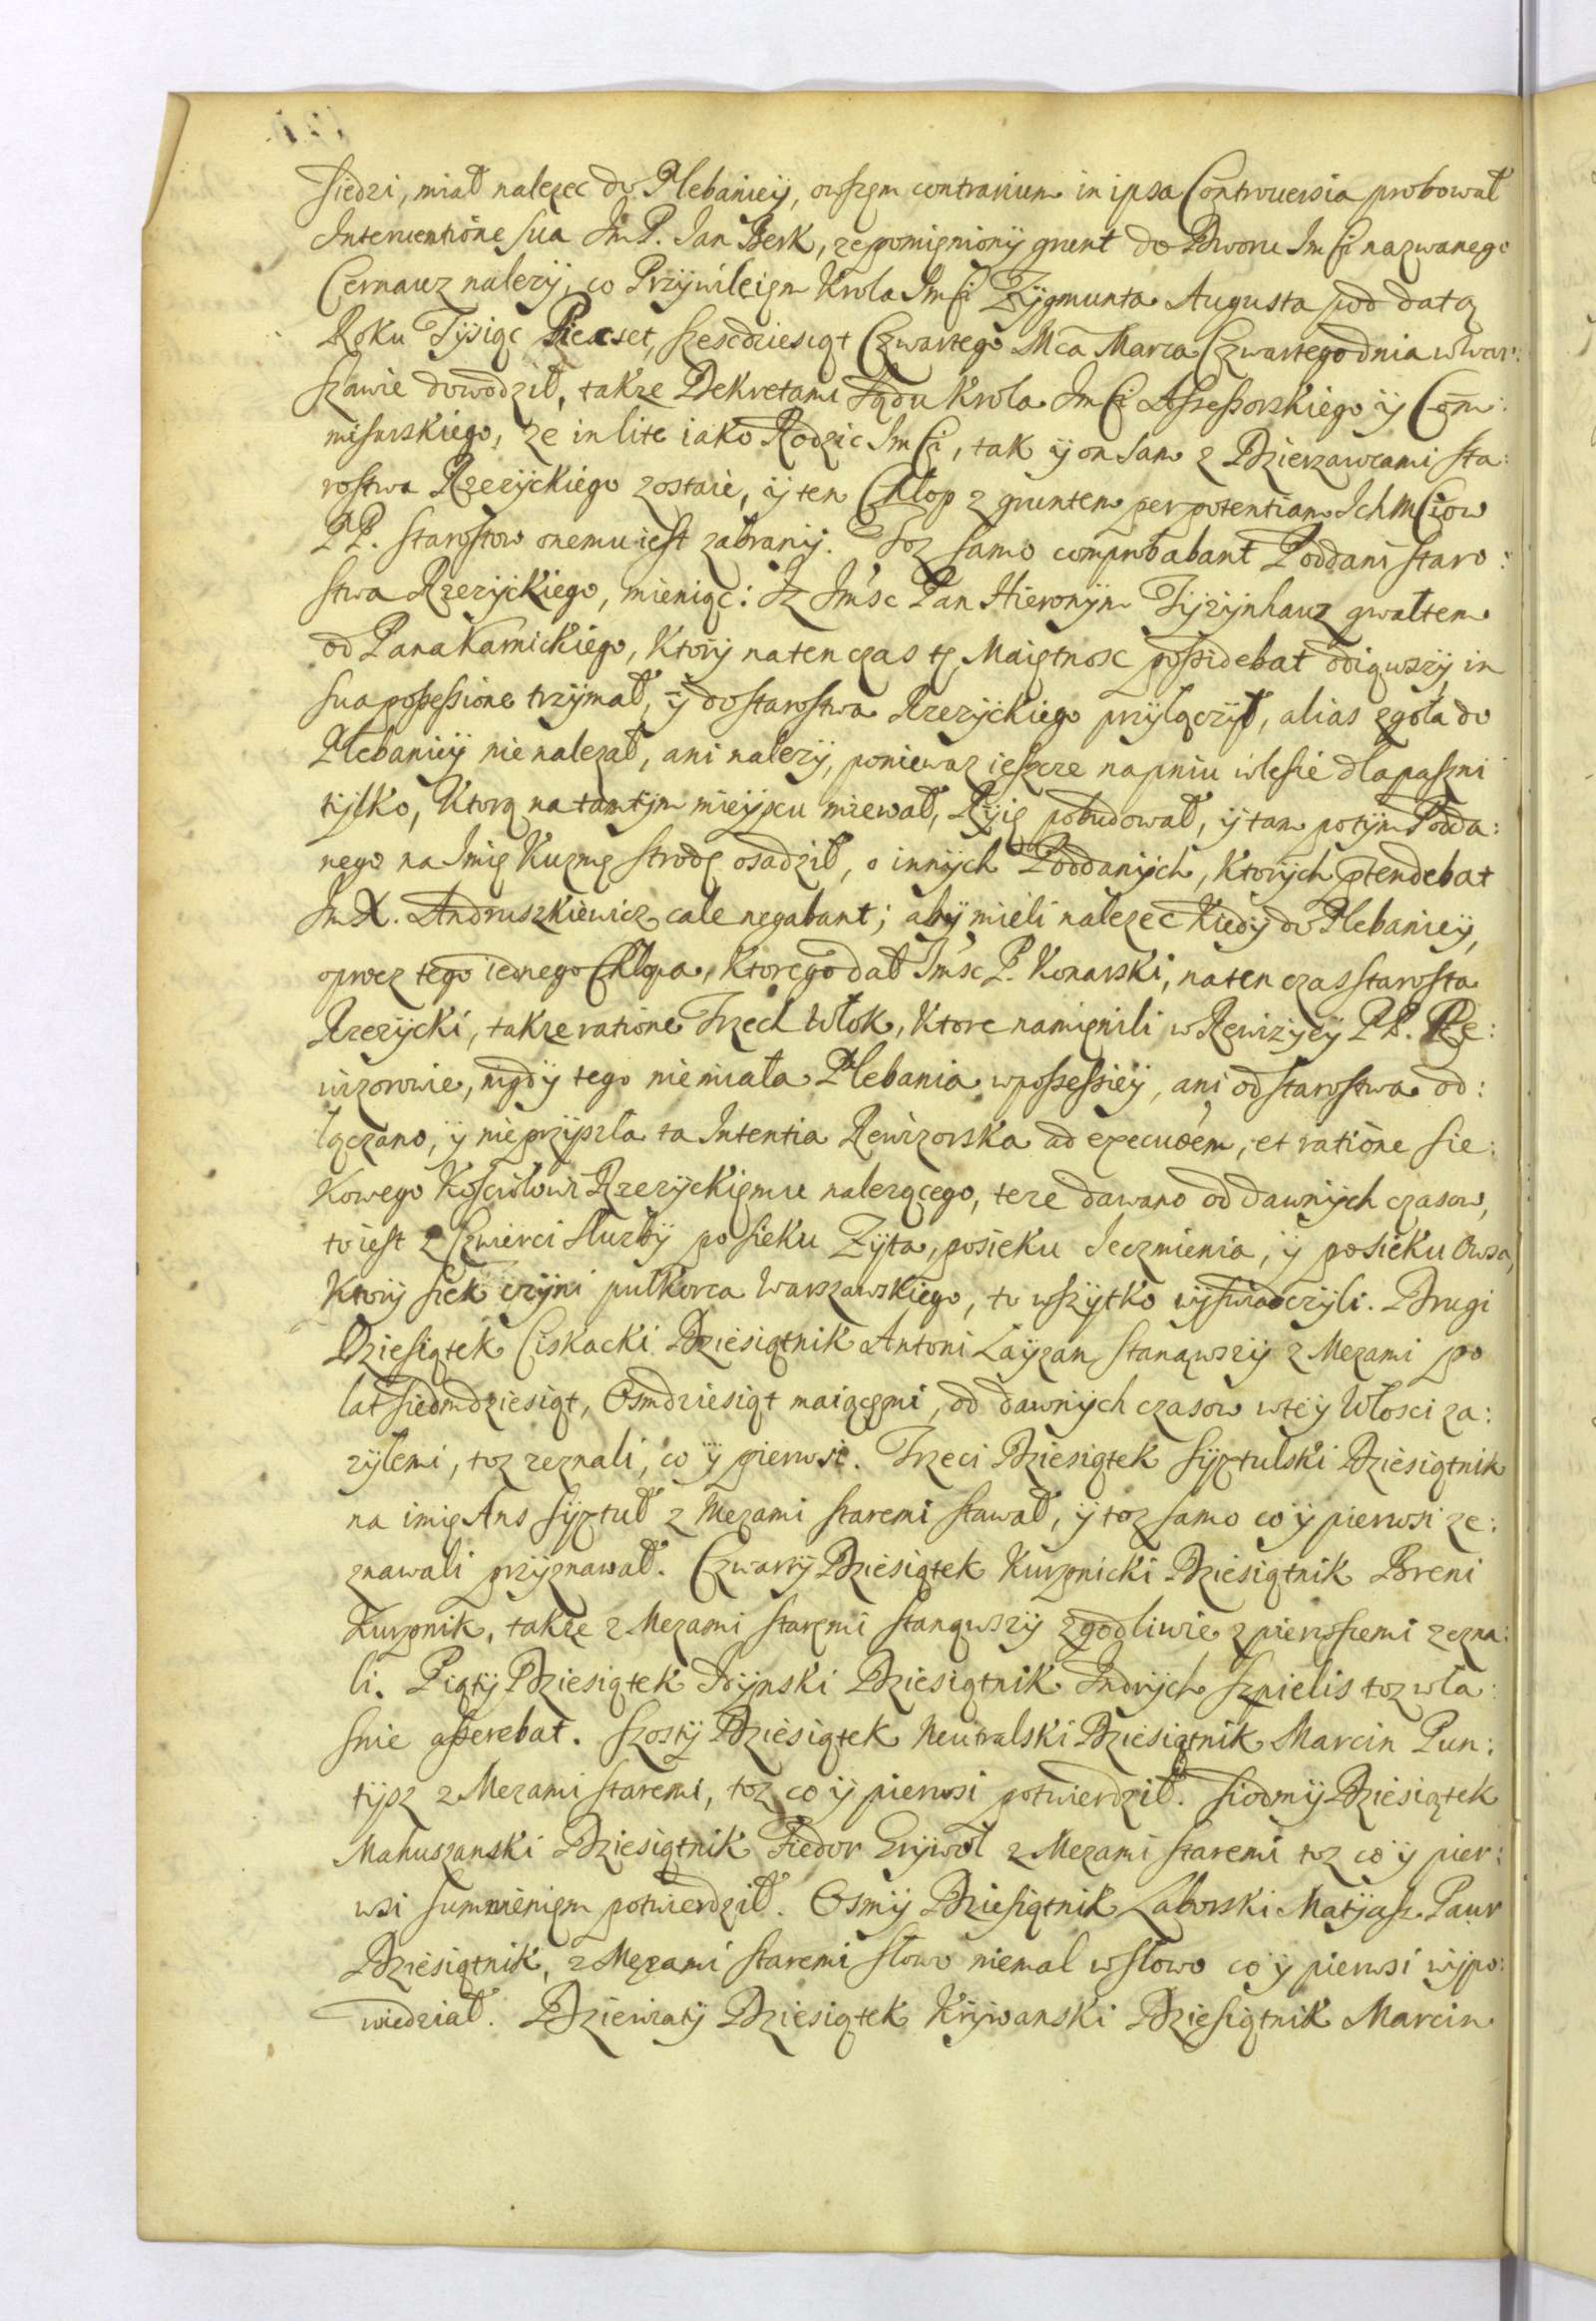 siedzi, miał nalezec do Plebaniey, owszem contrarium in ipsa Controuersia probował
Interuentione sua Jm P. Jan Berk, ze pomieniony grunt do Dworu Jm Ci nazwanego
Cernauz nalezy, co Przywileiem Krola Jm Ci Zygmunta Augusta pod datą
Roku Tysiąc Piecset, szescdziesiąt Czwartego Mca Marca Czwartego dnia w War:
szawie dowodził, takze Dekretami Sądu Krola Jm Ci Assessorskiego y Com:
misurskiego, ze in lite iako Rodzic Jm Ci, tak y on sam z Dzierzawcami sta:
rostwa Rzezyckiego zostaie, y ten Chłop z gruntem per potentiam IchMciow
PP. starostow onemu iest zabrany. Toz samo comprobabant Poddani staro:
stwa Rzezyckiego, mieniąc: Iz Jmsc Pan Hieronym Tyzynhauz gwałtem
od Pana Karnickiego, ktory na ten czas tę Maiętnosc possidebat odiąwszy, in
sua possessione trzymał, y do starostwa Rzezyckiego przyłączył, alias zgoła do
Plebaniey nie nalezał, ani nalezy, poniewaz ieszcze na pniu w lesie dla paszni
tylko, ktorą na tamtym mieyscu miewał, Ryię pobudował, y tam potym Podda:
nego na Imię Kuzmę strodę osadził, o innych Poddanych, ktorych ptendebat
Jm X. Andruszkiewicz cale negabant; aby mieli nalezec kiedy do Plebaniey,
oprocz tego iednego Chłopa, ktorego dał Jmsc P. Konarski, na ten czas starosta
Rzezycki, takze ratione Trzech Włok, ktore namienili w Rewizyey PP. Re:
wizorowie, nigdy tego nie miała Plebania w possessiey, ani od starostwa od:
łączano, y nie przyszła ta Intentia Rewizorska ad execuoem, et ratione sie:
kowego Kosciołowi Rzezyckiemu nalezącego, teze dawano od dawnych czasow,
to iest z Czwierci sluzby po sieku Zyta, po sieku Ieczmienia, y po sieku Owsa,
ktory siek czyni pułkorca Warszawskiego, to wszytko wyswiadczyli. Drugi
Dziesiątek Ciskacki Dziesiątnik Antoni Layzan, stanąwszy z Męzami po
lat siedmdziesiąt, Osmdziesiąt maiącemi, od dawnych czasow w tey Włosci za:
zyłemi, toz zeznali, co y pierwsi. Trzeci Dziesiątek Syztulski Dziesiątnik
na imię Ans Syztuł z Męzami staremi stawał, y toz samo co y pierwsi ze:
znawali przyznawał. Czwarty Dziesiątek Kurpnicki Dziesiątnik Breni
Kurpnik, takze z Męzami staremi stanąwszy zgodliwie z pierwszemi zezna:
li. Piąty Dziesiątek Dryynski Dziesiątnik Indrych Szpielis toz wła:
snie asserebat. Szosty Dziesiątek Neutralski Dziesiątnik Marcin Pun:
tysz z Męzami staremi, toz co y pierwsi potwierdził. Siodmy Dziesiątek
Mahuszanski Dziesiątnik Fiedor Grywoł z Męzami staremi toz co y pier:
wsi sumnieniem potwierdził. Osmy Dziesiątnik Laborski Matyasz Paur
Dziesiątnik, z Męzami staremi słowo niemal w słowo co y pierwsi wypo:
wiedział. Dziewiąty Dziesiątek Krywanski Dziesiątnik Marcin